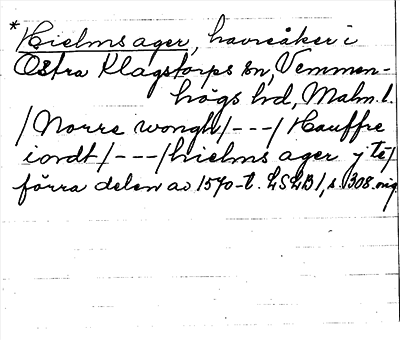 *Hielms ager, havreåker i
Östra Klagstorps sn, Vemmen-
högs hd, Malm. l.
/Norre wongh/---/Hauffre
iordt/---/hielms ager j te/
förra delen av 1570-t. LSLB 1, s. 1308. orig.